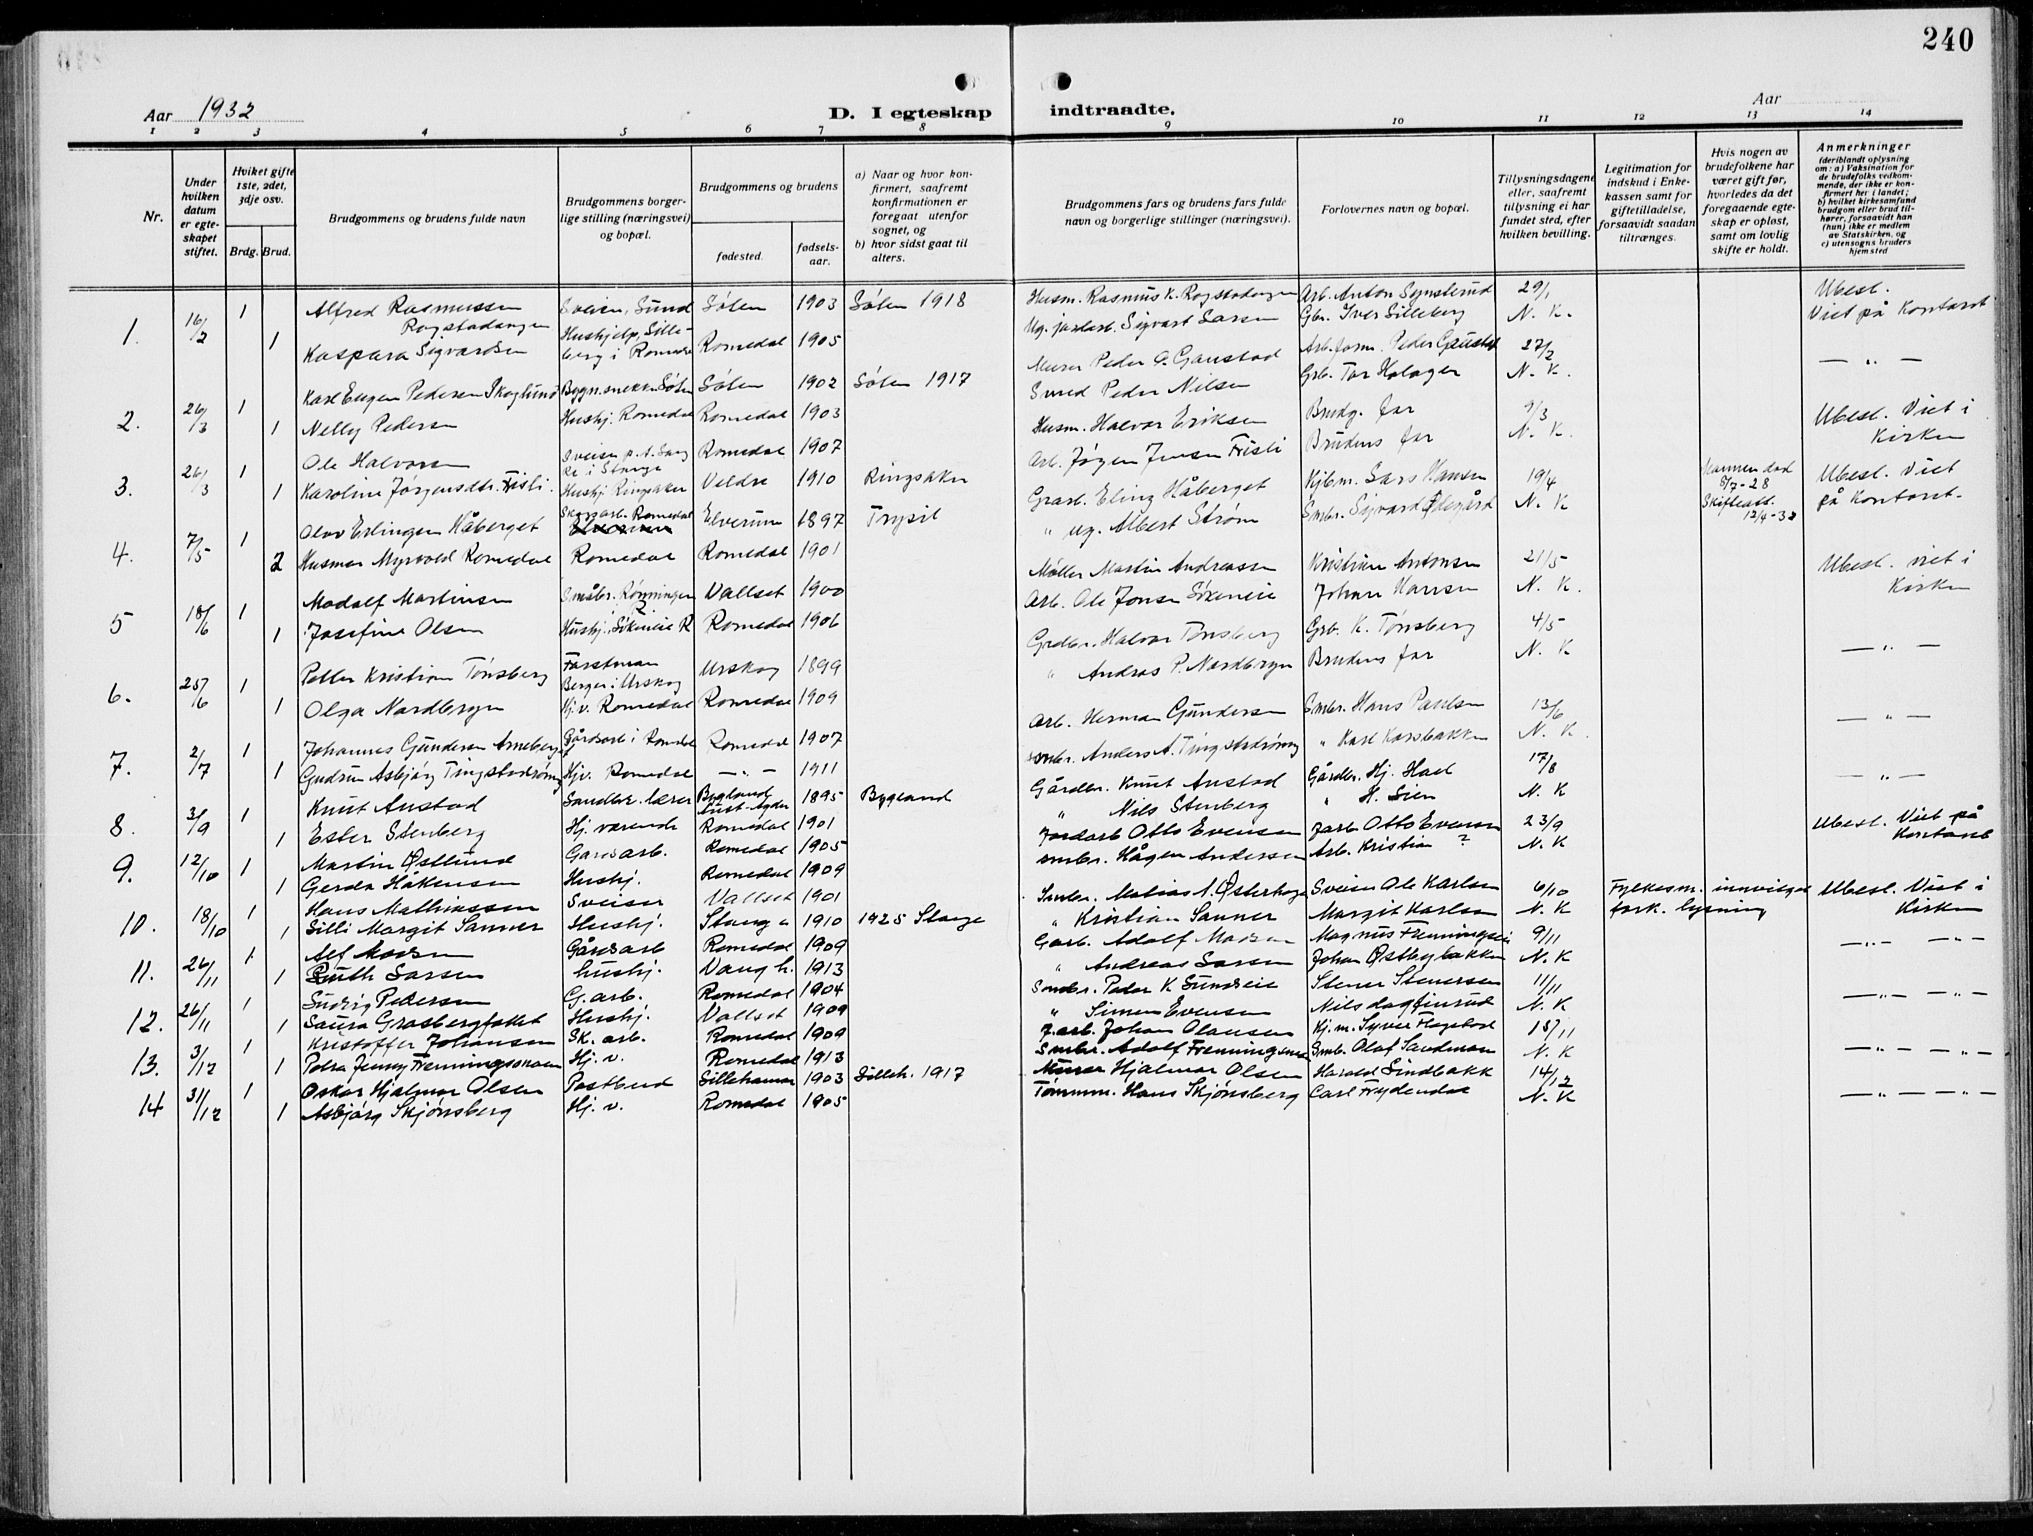 240
Aar 1932
D. I egteskap indtraadte.
Aar
1 2 3 4 5 6 7 8 9 10 11 12 13 14
Nr.
Under hvilken datum er egteskapet stiftet.
Hviket gifte 1ste, 2det, 3dje osv.
Brdg. Brud.
Brudgommens og brudens fulde navn
Brudgommens borgerlige stilling (næringsvei) og bopæl.
Brudgommens og brudens
fødested.
fødselsaar.
a) Naar og hvor konfirmert, saafremt konfirmationen er foregaat utenfor sognet, og
b) hvor sidst gaat til alters.
Brudgommens fars og brudens fars fulde navn og borgerlige stillinger (næringsvei).
Forlovernes navn og bopæl.
Tillysningsdagene eller, saafremt tillysning ei har fundet sted, efter hvilken bevilling.
Legitimation for indskud i Enkekassen samt for giftetilladelse, forsaavidt saadan tiltrænges.
Hvis nogen av brudefolkene har været gift før, hvorledes da det foregaaende egteskap er opløst, samt om lovlig skifte er holdt.
Anmerkninger
(deriblandt oplysning om: a) Vaksination for de brudefolks vedkommende, der ikke er konfirmert her i landet; b) hvilket kirkesamfund brudgom eller brud tilhører, forsaavidt han (hun) ikke er medlem av Statskirken, og c) utensogns bruders hjemsted
1. 16/2 1 Alfred Rasmussen Rogstadangen Sveiser, Sund Løten 1903 Løten 1918 Husm. Rasmus K. Rogstadangen Arb. Anton 29/1 Ubesl.
1 Kaspara Sigvardsen Hushjelp, Lilleberg i Romedal Romedal 1905 Ug. jordarb. Sigvart Larsen Gbr. Iver Lilleberg N. K. Viet på Kontoret
2. 26/3 1 Karl Eugen Pedersen Skoglund Bygn.snekk. Løten Løten 1902 Løten 1917 Murer Peder G. Gaustad Arb.form. Peder Gaustad 27/2 — " —
1 Nelly Pedersen Hushj. Romedal Romedal 1903 Smed Peder Nilsen Grb. Tor Holager N. K.
3. 26/3 1 Ole Halvorsen Sveiser i Stange Romedal 1907 Husm. Halvor Eriksen Brudg. far 9/3 Ubesl. Viet i
1 Karoline Jørgensdtr. Frisli. Hushj Ringsaker Veldre 1910 Ringsaker Arb. Jørgen Jensen Frisli Brudens far N. K. Kirken
4. 7/5 1 Olav Erlingsen Håberget Skogsarb. Romedal Elverum 1897 Trysil Grarb. Eling Håberget Kjbm. Lars Hansen 19/4 Mannen død 8/7-28 Ubesl. Viet
2 Myrvold Romedal Romedal Romedal 1901 " ug. Albert Strøm Smbr. Sigvard Ødegård N. K Skifteatt. 12/4-32 på Kontoret.
5 18/6 1 Modolf Martinsen Småbr. Rønningen R Vallset 1900 Møller Martin Andreassen Kristian Antonsen 21/5 Ubesl. viet i
1 Josefine Olsen Hushj., Søkeneie R Romedal 1906 Arb. Ole Jonsen Søkeneie Johan Hansen N. K. Kirken
6. 25/6 1 Petter Kristian Tønsberg Forstman Berger i Urskog Urskog 1899 Grdbr. Halvor Tønsberg Grb. K. Tønsberg 4/5 — " —
1 Olga Nordbergen Hj. v. Romedal Romedal 1909 " Andreas P. Nordbergen Brudens far N. K
7. 2/7 1 Johannes Gundersen Arneberget Gårdsarb i Romedal Romedal 1907 Arb. Herman Gundersen Smbr. Hans Paulsen 13/6 — " —
1 Gudrun Asbjørg Tingstadrønning Hjv. Romedal — " — 1911 Smbr. Anders A. Tingstadrønning " Karl Korsbakken N. K.
8. 3/9 1 Knut Austad Landbr. lærer Bygland Aust-Agder 1895 Bygland Gårdbr. Knut Austad Gårdbr. Hj. Hoel 17/8 — " —
1 Ester Stenberg Hj. værende Romedal 1901 " Nils Stenberg " H. Lien N. K
9. 12/10 1 Martin Østlund Gårdsarb. Romedal 1905 Jordarb Otto Evensen Jarb. Otto Evensen 23/9 Ubesl. Viet på
1 Gerda Håkensen Hushj. Romedal 1909 Smbr. Hågen Andersen Arb. Kristian ? N. K Kontoret
10. 18/10 1 Hans Mathiassen Sveiser Vallset 1901 Smbr. Matias N. Østerhagen Sveiser Ole Karlsen 6/10 Fylkesm. innvilget Ubesl. Viet i
1 Lilli Margit Sanner Hushj. Stange 1910 1925 Stange " Kristian Sanner Margit Karlsen N. K fork. lysning Kirken
11. 26/11 1 Alf Madsen Gårdsarb Romedal 1909 Garb. Adolf Madsen Magnus Flemmingsen 9/11 — " — — " —
1 Ruth Larsen hushj. Vang h. 1913 " Andreas Larsen Johan Østbybakken N. K
12. 26/11 1 Ludvig Pedersen G. arb. Romedal 1904 Smbr. Peder K Sundseie Stener Stenersen 11/11 — " — — " —
1 Laura Grasbergfallet Hushj. Vallset 1909 " Simen Evensen Nils Dagfinrud N. K
13. 3/12 1 Kristoffer Johansen Sk. arb. Romedal 1909 J. arb. Johan Olausen Kj. m. Syver Flagstad 15/11 — " — — " —
1 Petra Jenny Flemmingsmoen Hj. v. Romedal 1913 Smbr. Adolf Flemmingsmoen Smb. Olaf Sandmoen N. K
14 31/12 1 Oskar Hjalmar Olsen Postbud Lillehamar 1903 Lilleh. 1917 Murer Hjalmar Olsen Harald Lindbakk 14/12 — " — — " —
1 Asbjørg Skjønsberg Hj. v. Romedal 1905 Tømmm. Hans Skjønsberg Carl Frydendal N. K